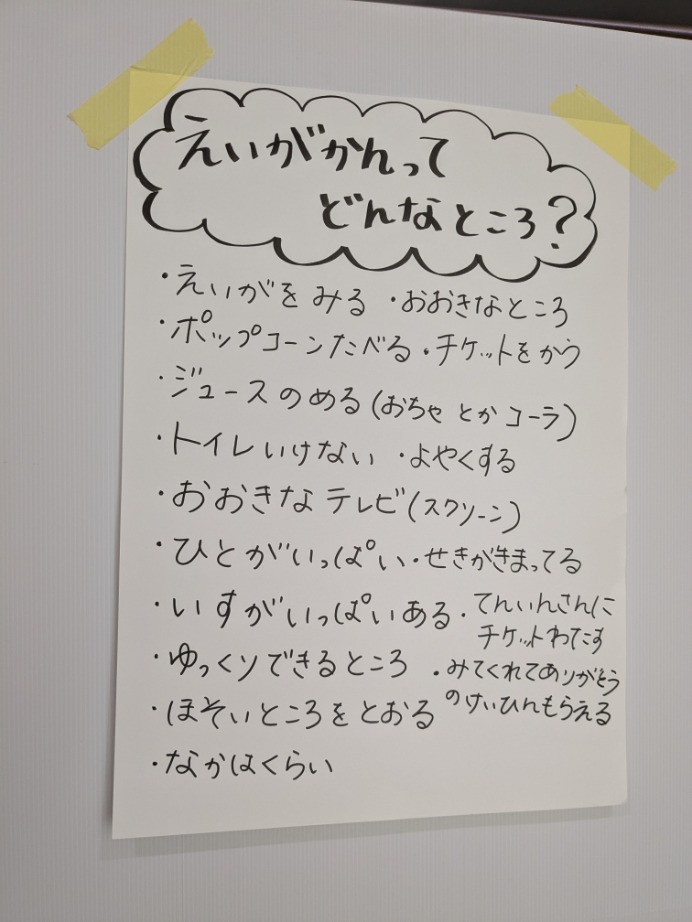 えいがかんって
どんなところ?
・えいがをみる ・おおきなところ
・ポップコーンたべる ・チケットをかう
・ジュースのめる(おちゃ とか コーラ)
・トイレいけない ・よやくする
・おおきなテレビ(スクリーン)
・ひとがいっぱい ・せきがきまってる
・いすがいっぱいある ・てんいんさんに
チケットわたす
・ゆっくりできるところ ・みてくれてありがとう
のけいひんもらえる
・ほそいところをとおる
・なかはくらい